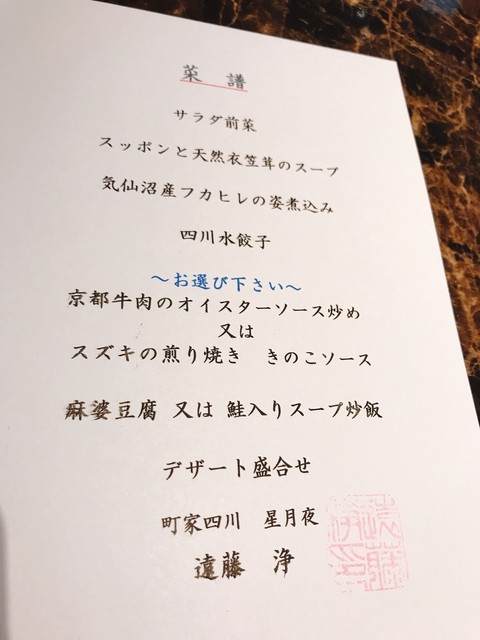 菜譜
サラダ前菜
スッポンと天然衣笠茸のスープ
気仙沼産フカヒレの姿煮込み
四川水餃子
～お選び下さい～
京都牛肉のオイスターソース炒め
又は
スズキの煎り焼き きのこソース
麻婆豆腐 又は 鮭入りスープ炒飯
デザート盛合せ
町家四川 星月夜
遠藤 浄